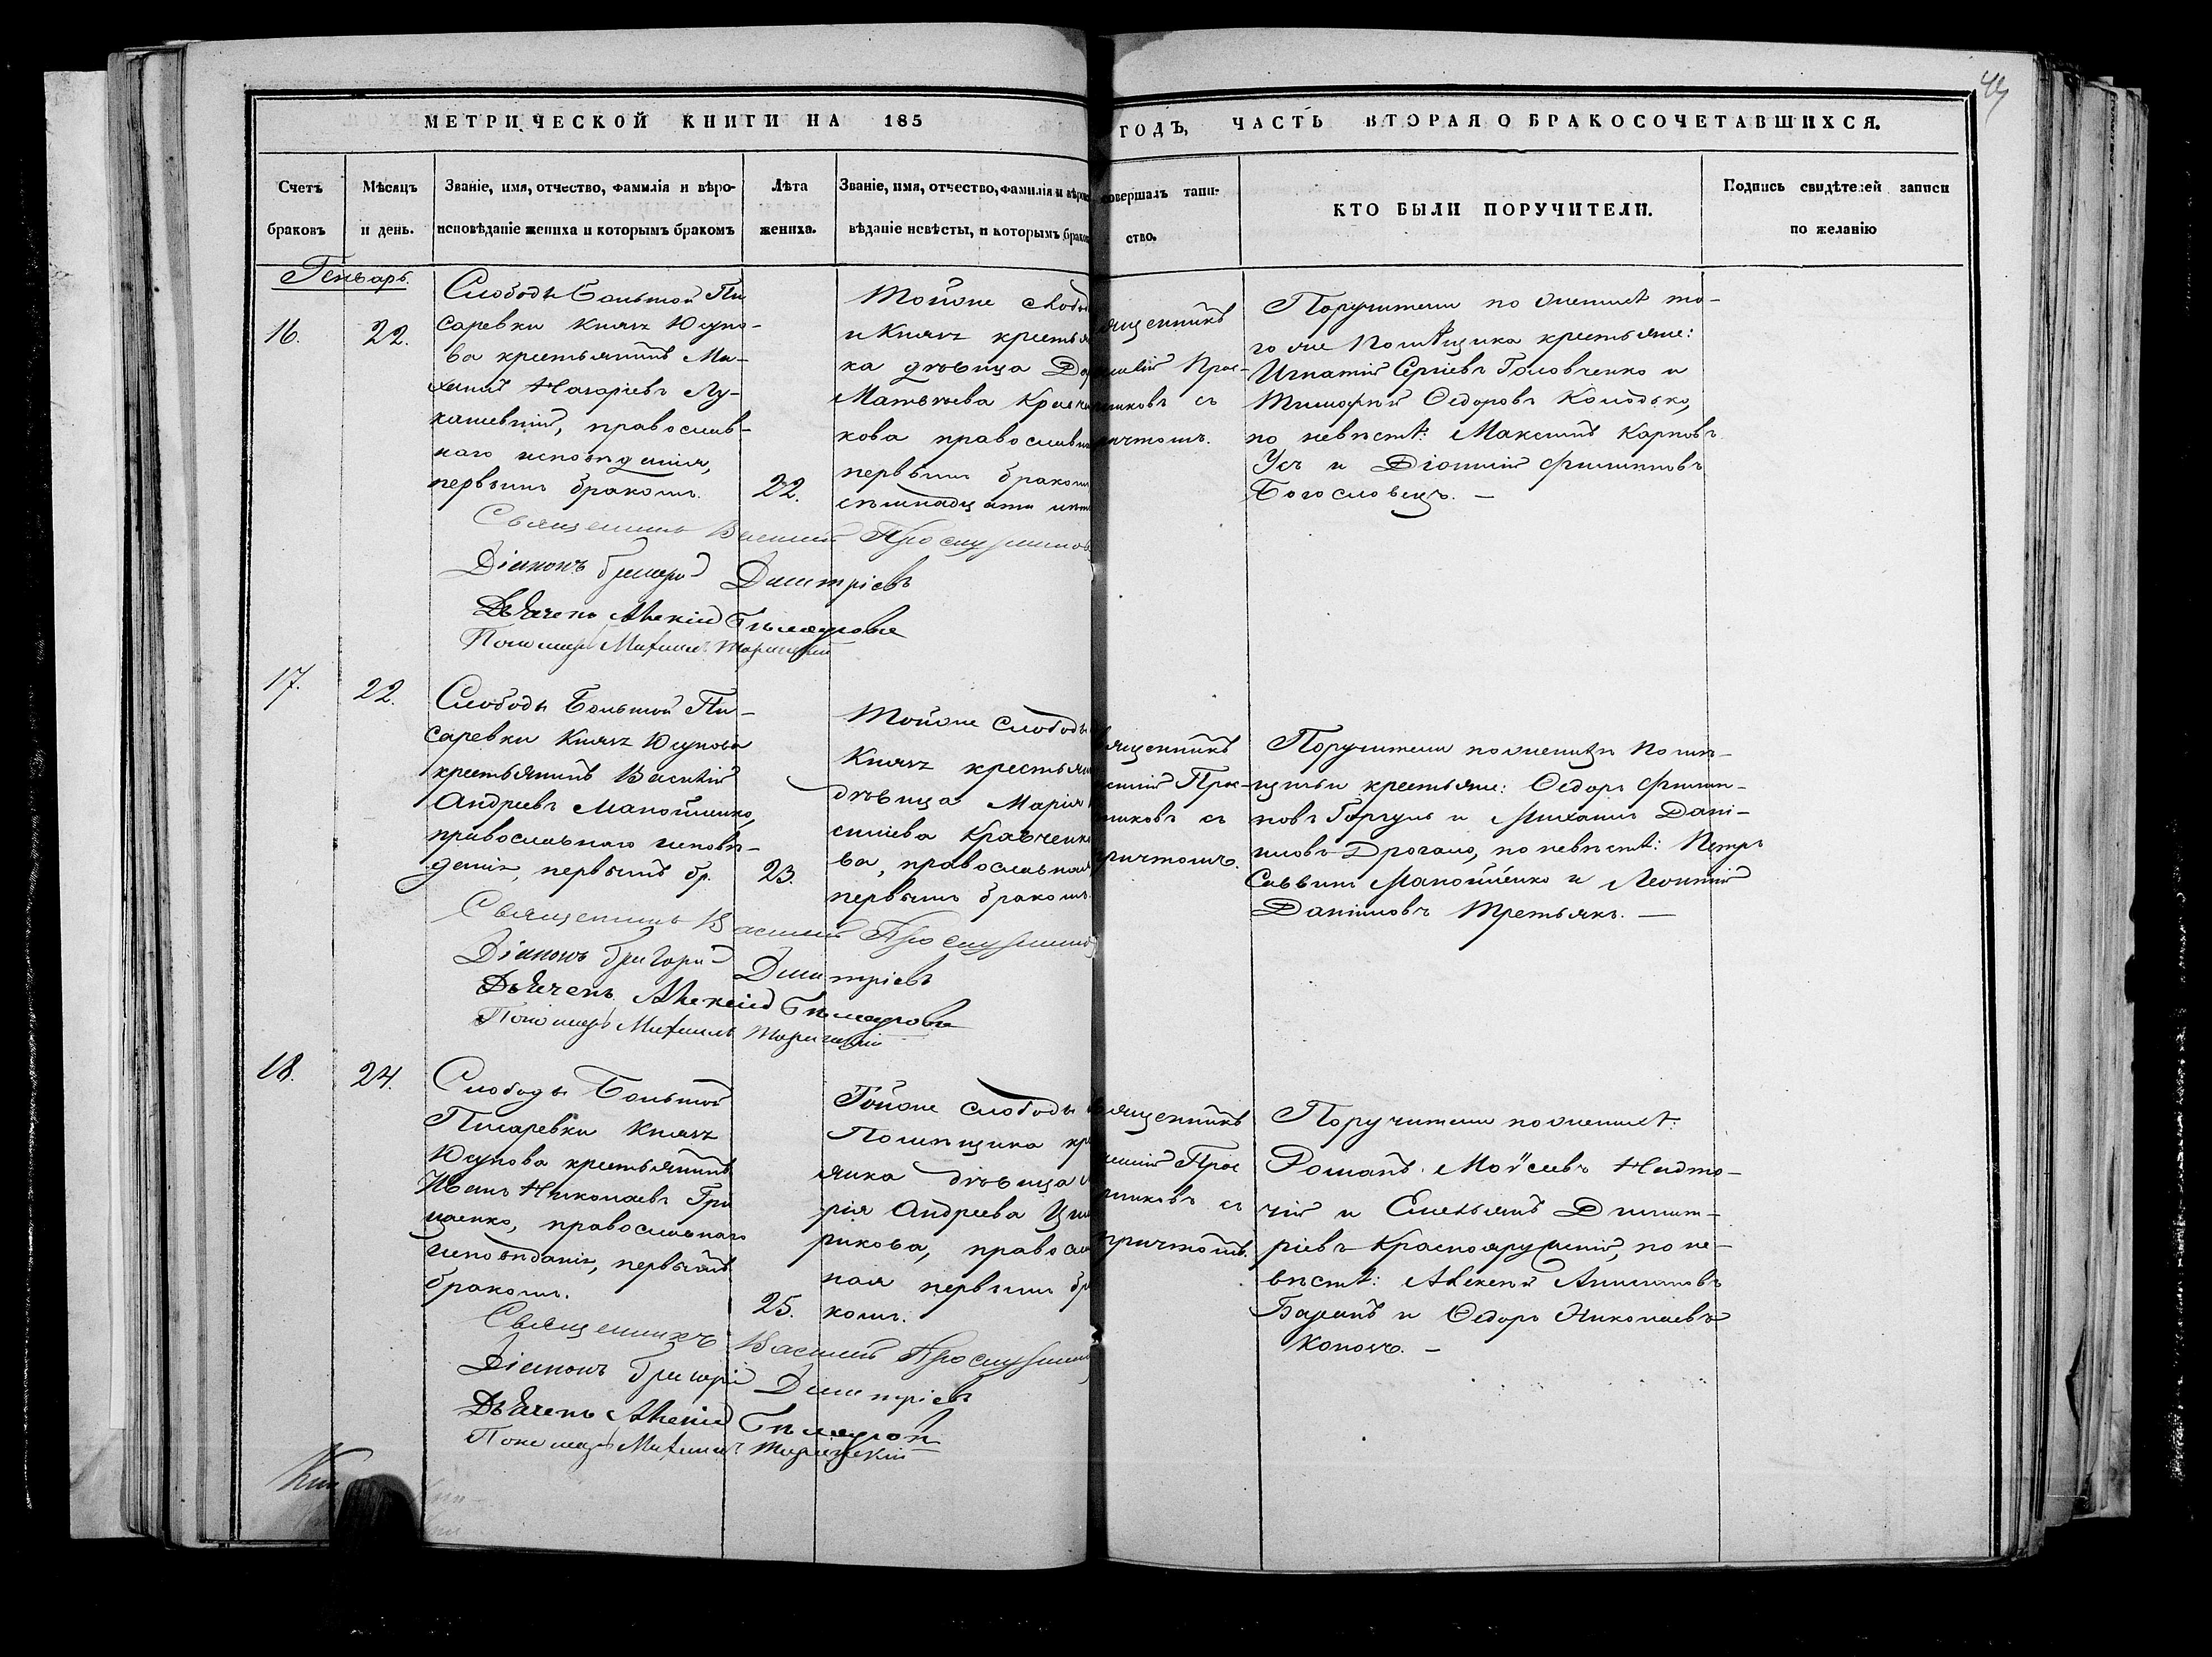 49
МЕТРИЧЕСКОЙ КНИГИ НА 185
ГОДЪ, ЧАСТЬ ВТОРАЯ О БРАКОСОЧЕТАВШИХСЯ.
Счетъ браковъ
Мѣсяцъ и день.
Званіе, имя, отчество, фамилія и вѣро-
исповѣданіе жениха и которымъ бракомъ
Лѣта жениха.
Званіе, имя, отчество, фамилія и вѣрои
вѣданіе невѣсты, и которымъ брако
совершалъ таин-
ство.
КТО БЫЛИ ПОРУЧИТЕЛИ.
Подпись свидѣтелей записи
по желанію
Генварь.
16.
22.
Слободы Большой Пи
саревки Князя Юсупо-
ва крестьянинъ Ми-
хаилъ Назаріевъ Лу-
кашевній, православ-
наго исповѣданія,
первымъ бракомъ.
22.
Тойже слобо
и Князя крестья
ка дѣвица
Матвѣева
кова православ
первымъ бракомъ
семнадцати лѣт
ященникъ
силій Прос-
никовъ съ
ричтомъ.
Поручители по женихѣ то-
го же Помѣщика крестьяне:
Игнатій Сергіевъ Головченко и
Тимофей Ѳедоровъ Колодко,
по невѣстѣ: Максимъ Карповъ
Усъ и Діонисій Филиповъ
Богословецъ. —
Священникъ Василій
Діаконъ Григорій Дмитріевъ
Дьячекъ Алексій
Пономарь Михаилъ
17.
22.
Слободы Большой Пи-
саревки Князя Юсупова
крестьянинъ Василій
Андреевъ Манойленко,
православнаго исповѣ-
данія, первымъ бр.
23.
Тойже слободы
Князя крестьян
дѣвица Марія
силіева Кравченк
ва, православная
первымъ бракомъ.
вященникъ
силій Прос-
никовъ съ
ричтомъ.
Поручители по женихѣ помѣ-
щичьи крестьяне: Ѳедоръ Филип-
повъ Горгуль и Михаилъ Дані-
иловъ Дрогано, по невѣстѣ: Петръ
Саввинъ Манойленко и Леонтій
Даніиловъ Третьякъ. —
Священникъ Василій
Діаконъ Григорій Дмитріевъ
Дьячекъ Алексій
Пономарь Михаилъ
18.
24.
Слободы Большой
Писаревки Князя
Юсупова крестьянинъ
Иванъ Николаевъ Гри
ценко, православнаго
исповѣданія, первымъ
бракомъ.
25.
Тойже слободы
Помѣщика кр
янка дѣвица
рія Андреева
рикова, правосл
ная первымъ бр
комъ.
вященникъ
силій Прос
никовъ съ
причтомъ.
Поручители по женихѣ:
Романъ Моѵсеевъ Надто-
чій и Емельянъ Димит-
ріевъ Краснояружскій, по не-
вѣстѣ: Алексѣй Анисимовъ
Баранъ и Ѳедоръ Николаевъ
Коноль. —
Священникъ Василій
Діаконъ Григорій Дмитріевъ
Дьячекъ Алексій
Пономарь Михаилъ